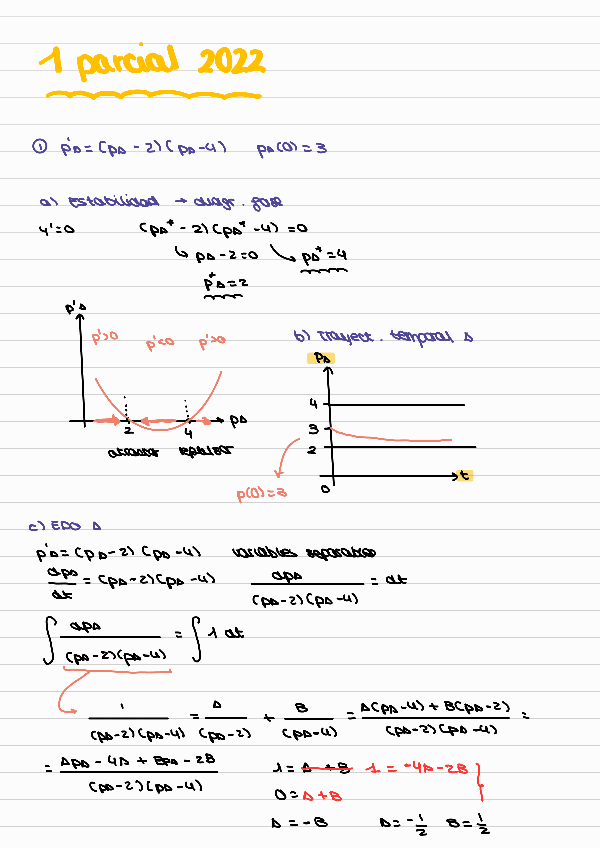 1 parcial 2022
① p'A = (pA - 2)(pA - 4) pA(0) = 3
a) estabilidad → diagr. fase
y' = 0 (pA* - 2)(pA* - 4) = 0
↳ pA - 2 = 0 ↘ pA* = 4
p*A = 2
p'A
p'>0 p'<0 p'>0
pA
2 4
atractor repulsor
b) trayect. temporal A
PA
4
3
2
0 t
p(0) = 3
c) EDO A
p'A = (pA - 2)(pA - 4) variables separables
dpA/dt = (pA - 2)(pA - 4) dpA/((pA - 2)(pA - 4)) = dt
∫ dpA/((pA - 2)(pA - 4)) = ∫ 1 dt
1/((pA - 2)(pA - 4)) = A/(pA - 2) + B/(pA - 4) = (A(pA - 4) + B(pA - 2))/((pA - 2)(pA - 4)) =
= (ApA - 4A + BpA - 2B)/((pA - 2)(pA - 4)) 1 = A + B 1 = -4A - 2B
0 = A + B
A = -B A = -1/2 B = 1/2